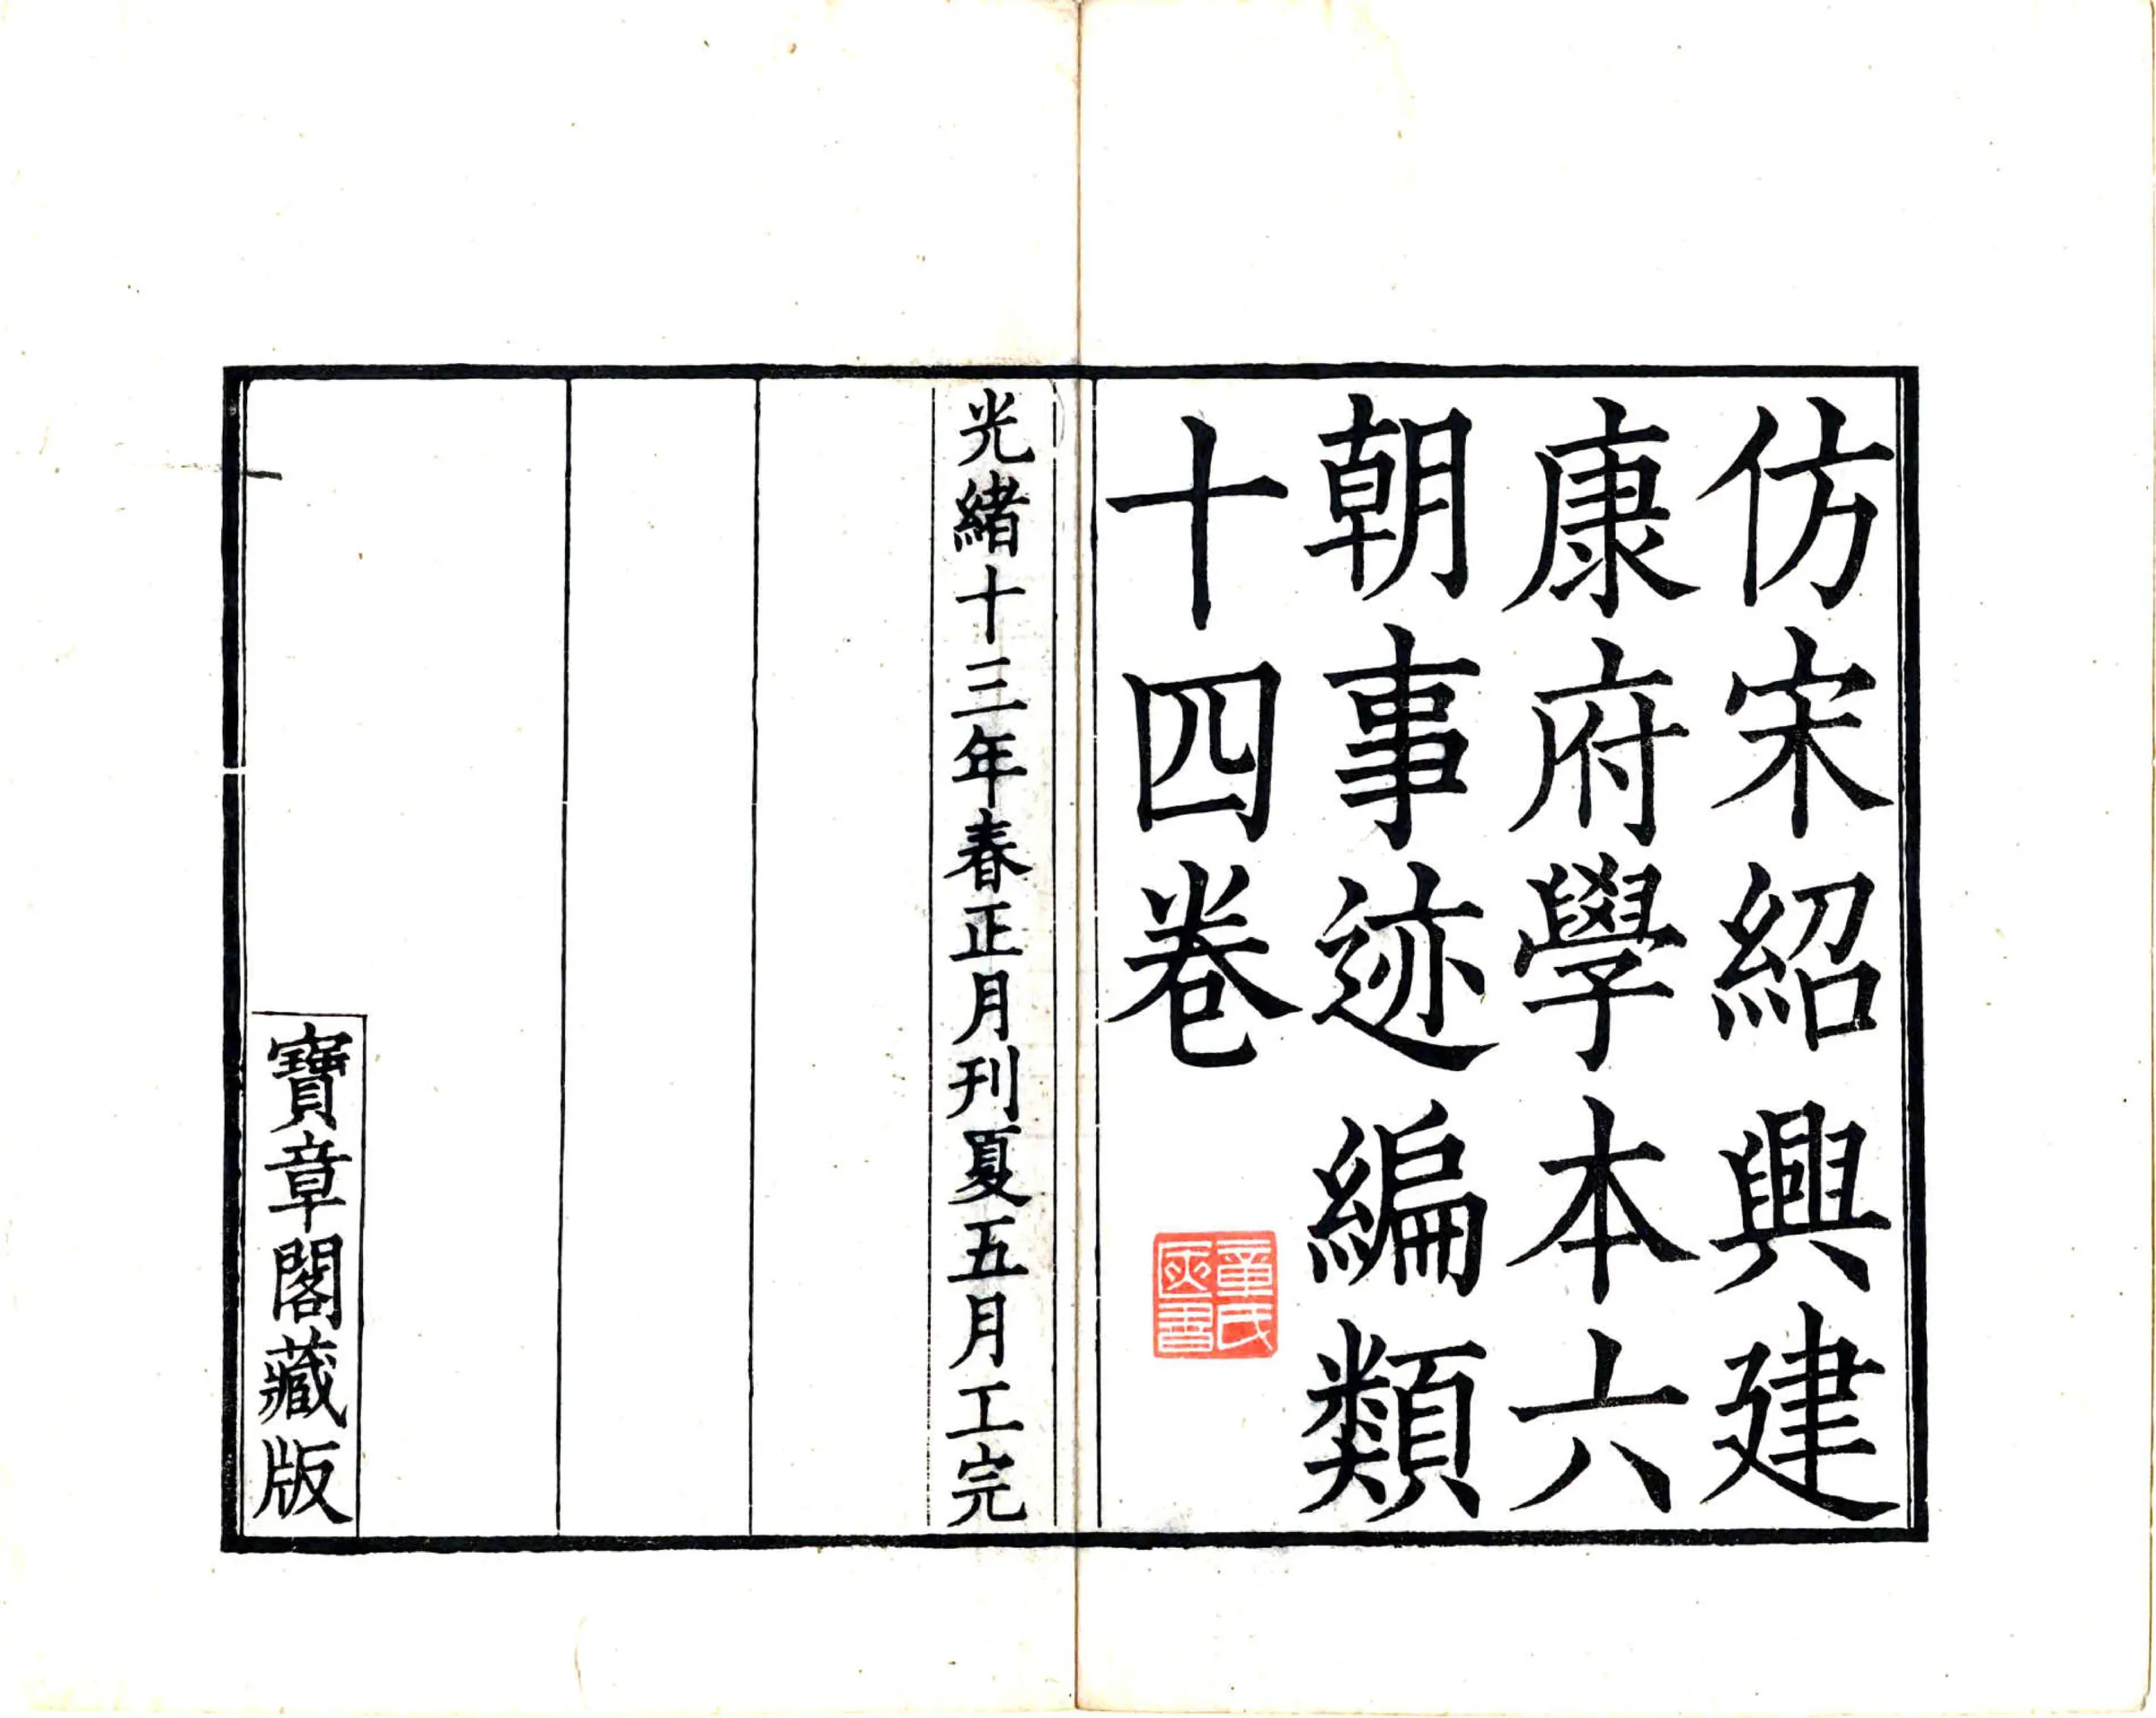 仿宋紹興建
康府學本六
朝事迹編類
十四卷
光緒十三年春正月刊夏五月工完
寶章閣藏版